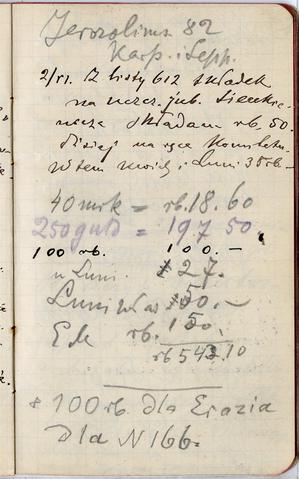 Jerozolims 82
Karp. i Sepp.
2/VI. Z listy 612 składek
na uczcz. jub. Sienkie-
wicza składam rb. 50.
dzisiaj na ręce Komitetu
W tem moich i Luni 35 rb –
40 mrk = rb. 18.60
250 guld = 197 50
100 rb. 100. –
u Luni. 27.
Luni
Ede rb. 150.
rb 543.10
* 100 rb. dla Erazia
Dla N 166.